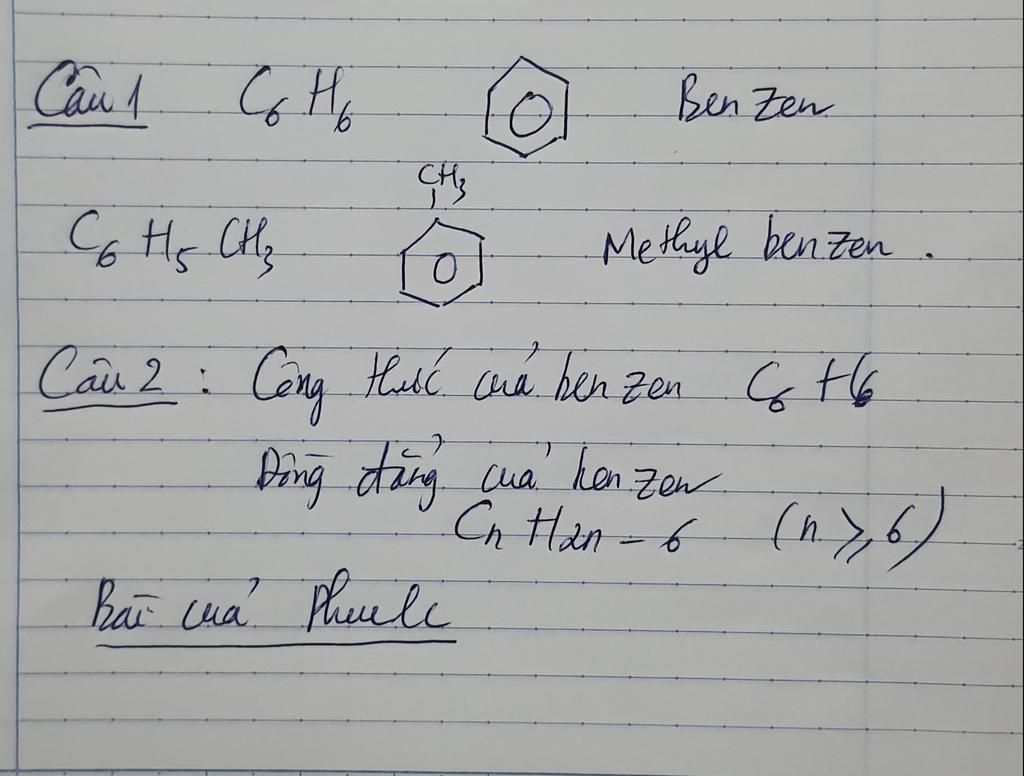 Câu 1 C6H6 Benzen
CH3
C6H5CH3 Methyl benzen.
Câu 2 : Công thức của benzen C6H6
Đồng đẳng của benzen
CnH2n-6 (n ≥ 6)
Bài của